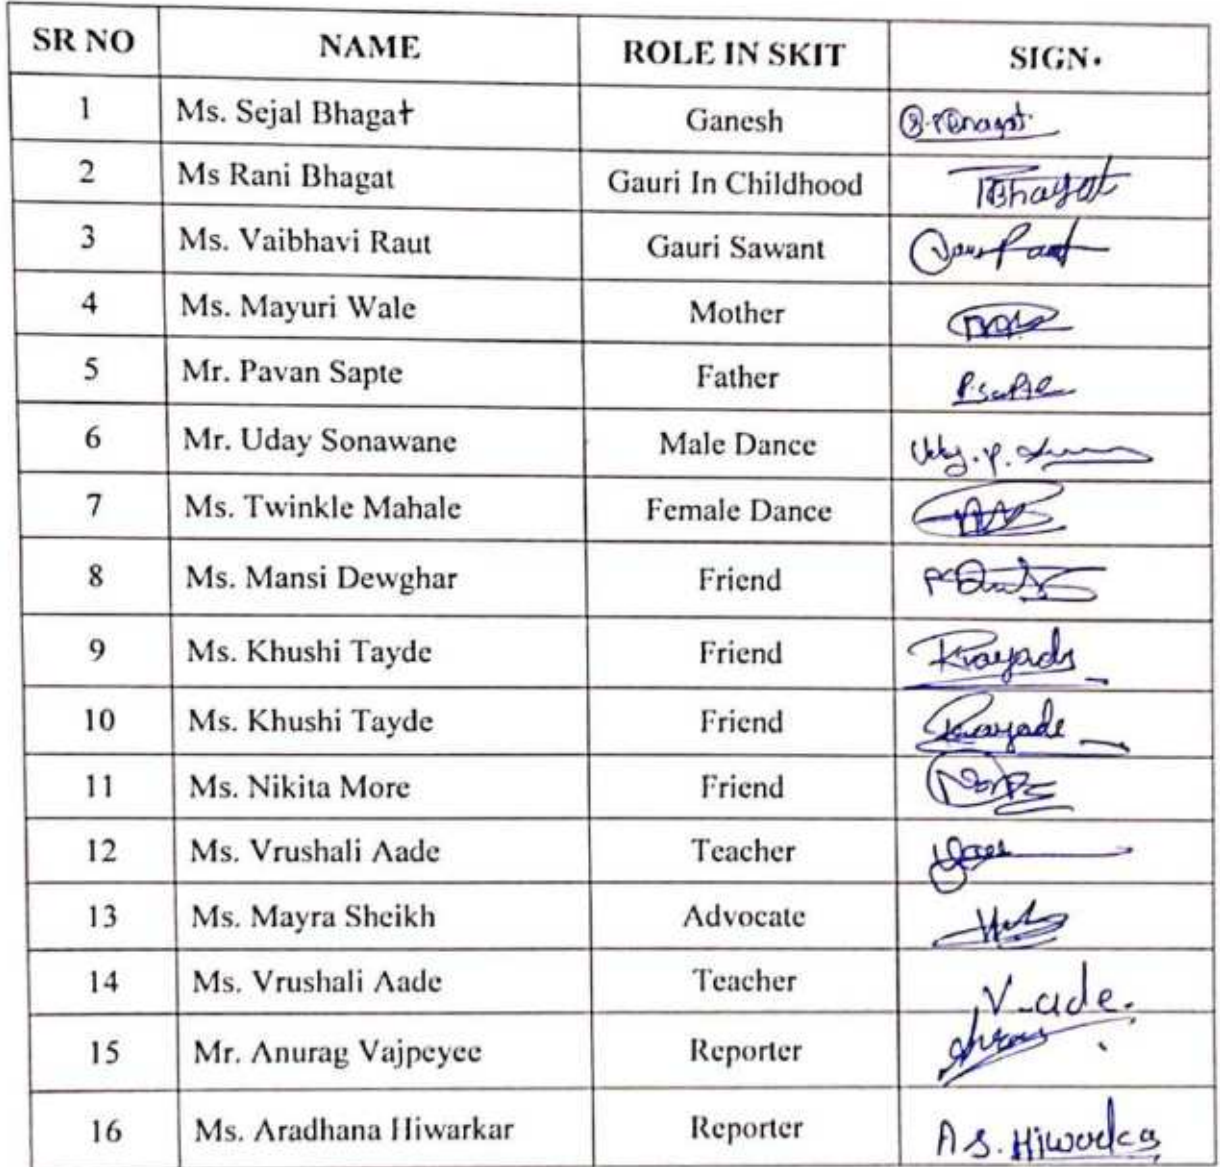 SR NO NAME ROLE IN SKIT SIGN.
1 Ms. Sejal Bhagat Ganesh
2 Ms Rani Bhagat Gauri In Childhood Bhagat
3 Ms. Vaibhavi Raut Gauri Sawant
4 Ms. Mayuri Wale Mother
5 Mr. Pavan Sapte Father P.Sapte
6 Mr. Uday Sonawane Male Dance
7 Ms. Twinkle Mahale Female Dance
8 Ms. Mansi Dewghar Friend
9 Ms. Khushi Tayde Friend
10 Ms. Khushi Tayde Friend
11 Ms. Nikita More Friend
12 Ms. Vrushali Aade Teacher
13 Ms. Mayra Sheikh Advocate
14 Ms. Vrushali Aade Teacher V-ade.
15 Mr. Anurag Vajpeyee Reporter
16 Ms. Aradhana Hiwarkar Reporter A S. Hiwarkar